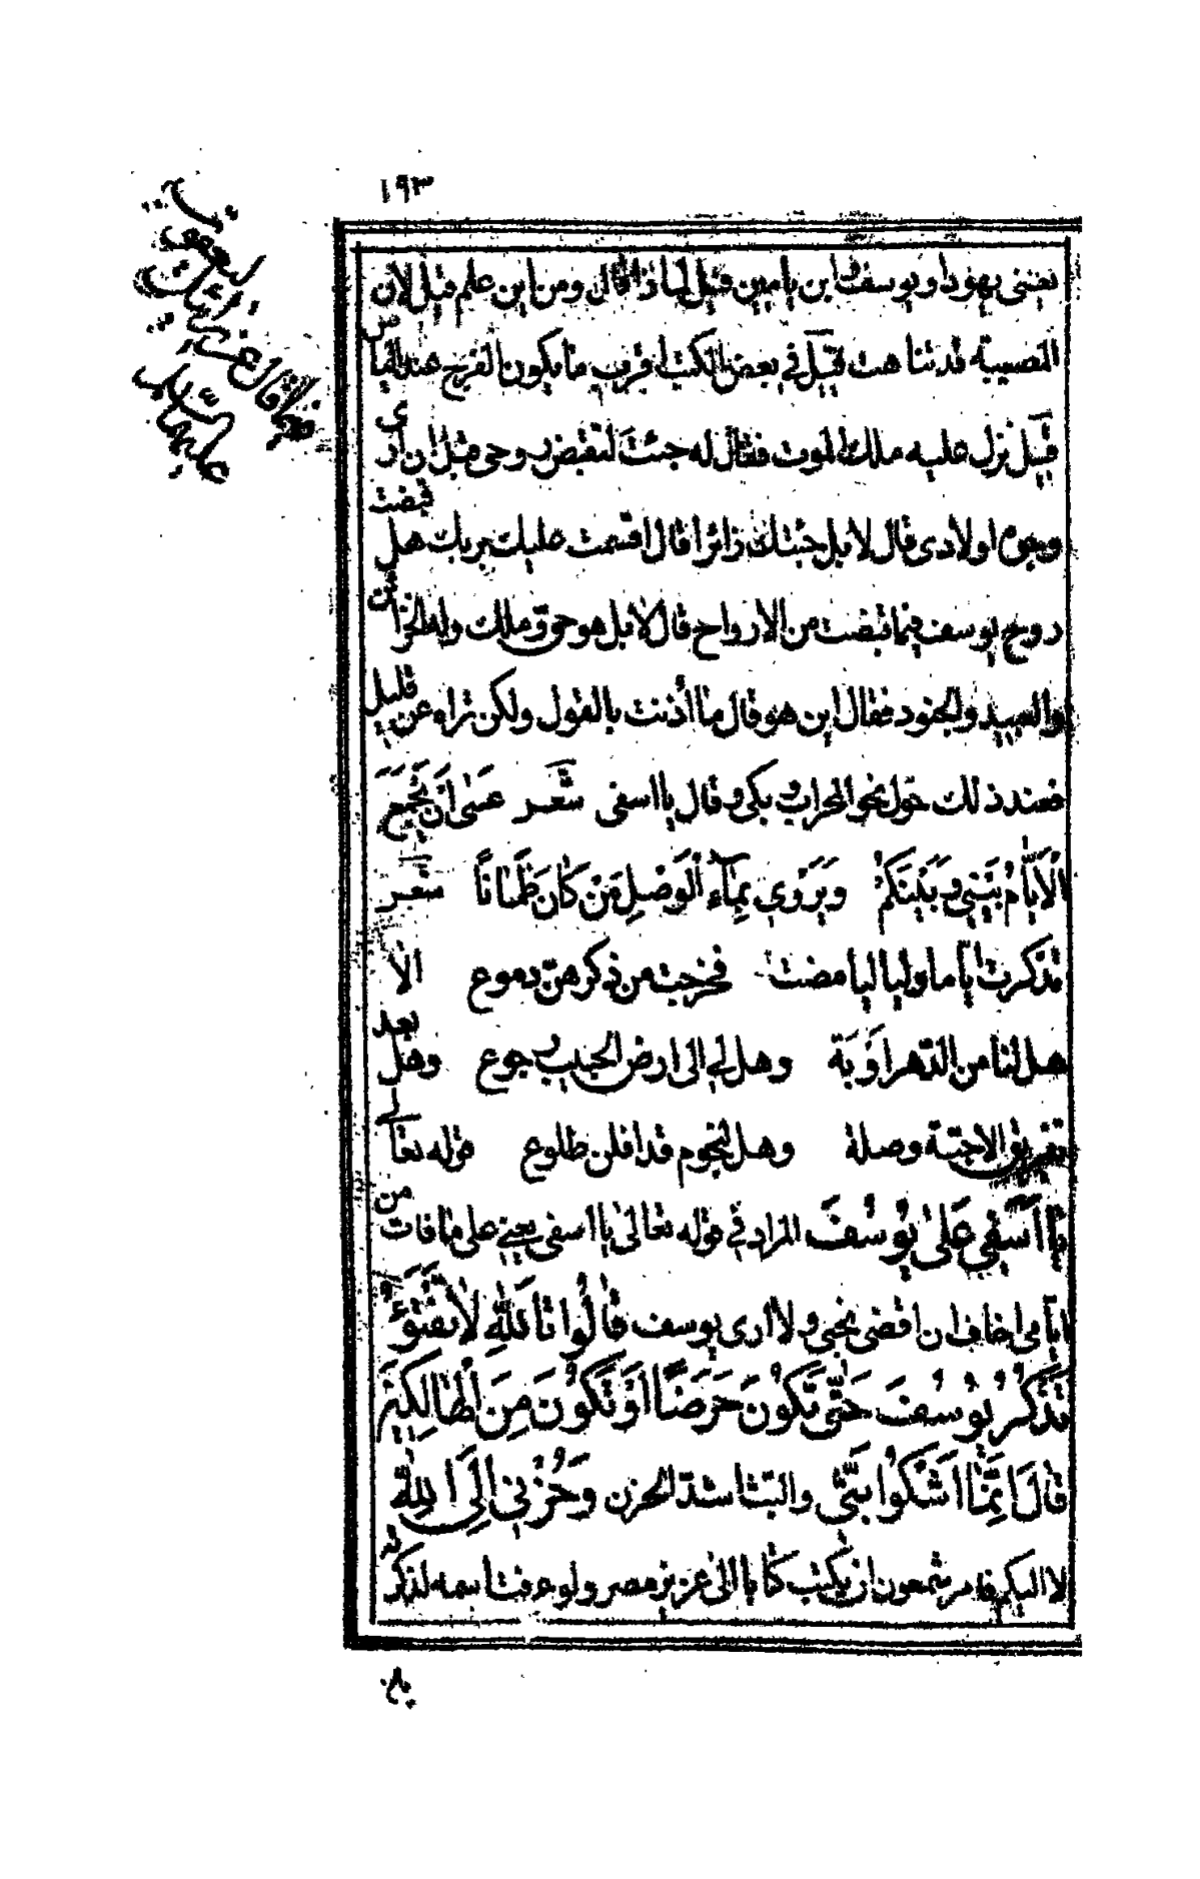 ١٩٣
يعنى يهودا ويوسف وابن يامين قيل لماذا قال ومن اين علم قيل لان
المصيبة قد تناهت قيل فى بعض الكتب اقرب ما يكون الفرج عند الياس
قيل نزل عليه ملك الموت فقال له جئت لتقبض روحى قبل ان ارى
وجوه اولادى قال لا بل جئتك زائرا قال اقسمت عليك بربك هل قبضت
روح يوسف فيما قبضت من الارواح قال لا بل هو حى وملك وله الخزائن
والعبيد والجنود فقال اين هو قال ما أذنت بالقول ولكن تراه عن قليل
فعند ذلك حول نحو المحراب وبكى وقال يا اسفى شعر عَسٰى اَنْ تَجْمَعَ
الْاَيَّامُ بَيْنِي وَبَيْنَكُمْ وَيَرْوِي بِمَاءِ الْوَصْلِ مَنْ كَانَ ظَمْاٰنًا شعر
تذكرت اياما وليا ليا مضت فخرجت من ذكرهن دموع الا
هل لنا من الدهر اَوْبَة وهل لى الى ارض الحبيب رجوع وهل بعد
تفريق الاحبة وصلة وهل لنجوم قد افلن طلوع قوله تعالى
يَا اَسَفٰى عَلٰى يُوسُفَ المراد فى قوله تعالى يا اسفى يعنى على ما فات من
ايامى اخاف ان اقضى نحبى ولا ارى يوسف قَالُوا تَاللّٰهِ لَا تَفْتَؤُ
تَذْكُرُ يُوسُفَ حَتّٰى تَكُونَ حَرَضًا اَوْ تَكُونَ مِنَ الْهَالِكِينَ
قَالَ اِنَّمَا اَشْكُوا بَثِّى والبث اشد الحزن وَحُزْنِى اِلَى اللّٰهِ
لا اليكم فامر شمعون ان يكتب كتابا الى عزيز مصر ولو عرفت اسمه لذكرته